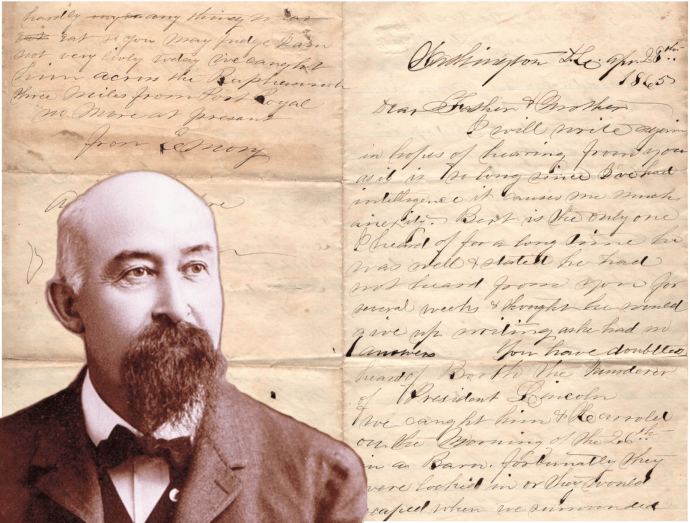 hardly any any thing to eat
eat so you may judge I am
not very lively today we caught
him across the Raphennock
three miles from Port Royal
no more at present
from Emory
Washington D.C. Apr 28th
1865
Dear Father & Mother
I will write again
in hopes of hearing from you
as it is so long since I've had
intelligence it causes me much
anxiety. Bert is the only one
I heard of for a long time he
was well & stated he had
not heard from you for
several weeks & thought he would
give up writing as he had no
answers You have doubtless
heard of Booth the Murderer
of President Lincoln
We caught him & Harrold
on the Morning of the 26th
in a Barn. fortunatly they
were locked in or they would
escaped when we surrounded